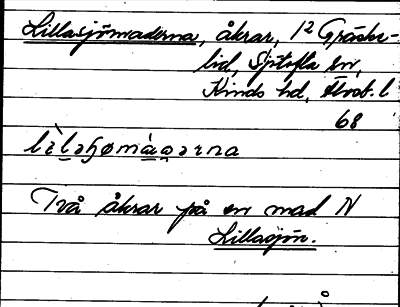 Lillasjömaderna, åkrar, 1² Gräske-
lid, Sjötofta sn,
Kinds hd, Älvsb. l
68
Två åkrar på en mad N
Lillasjön.